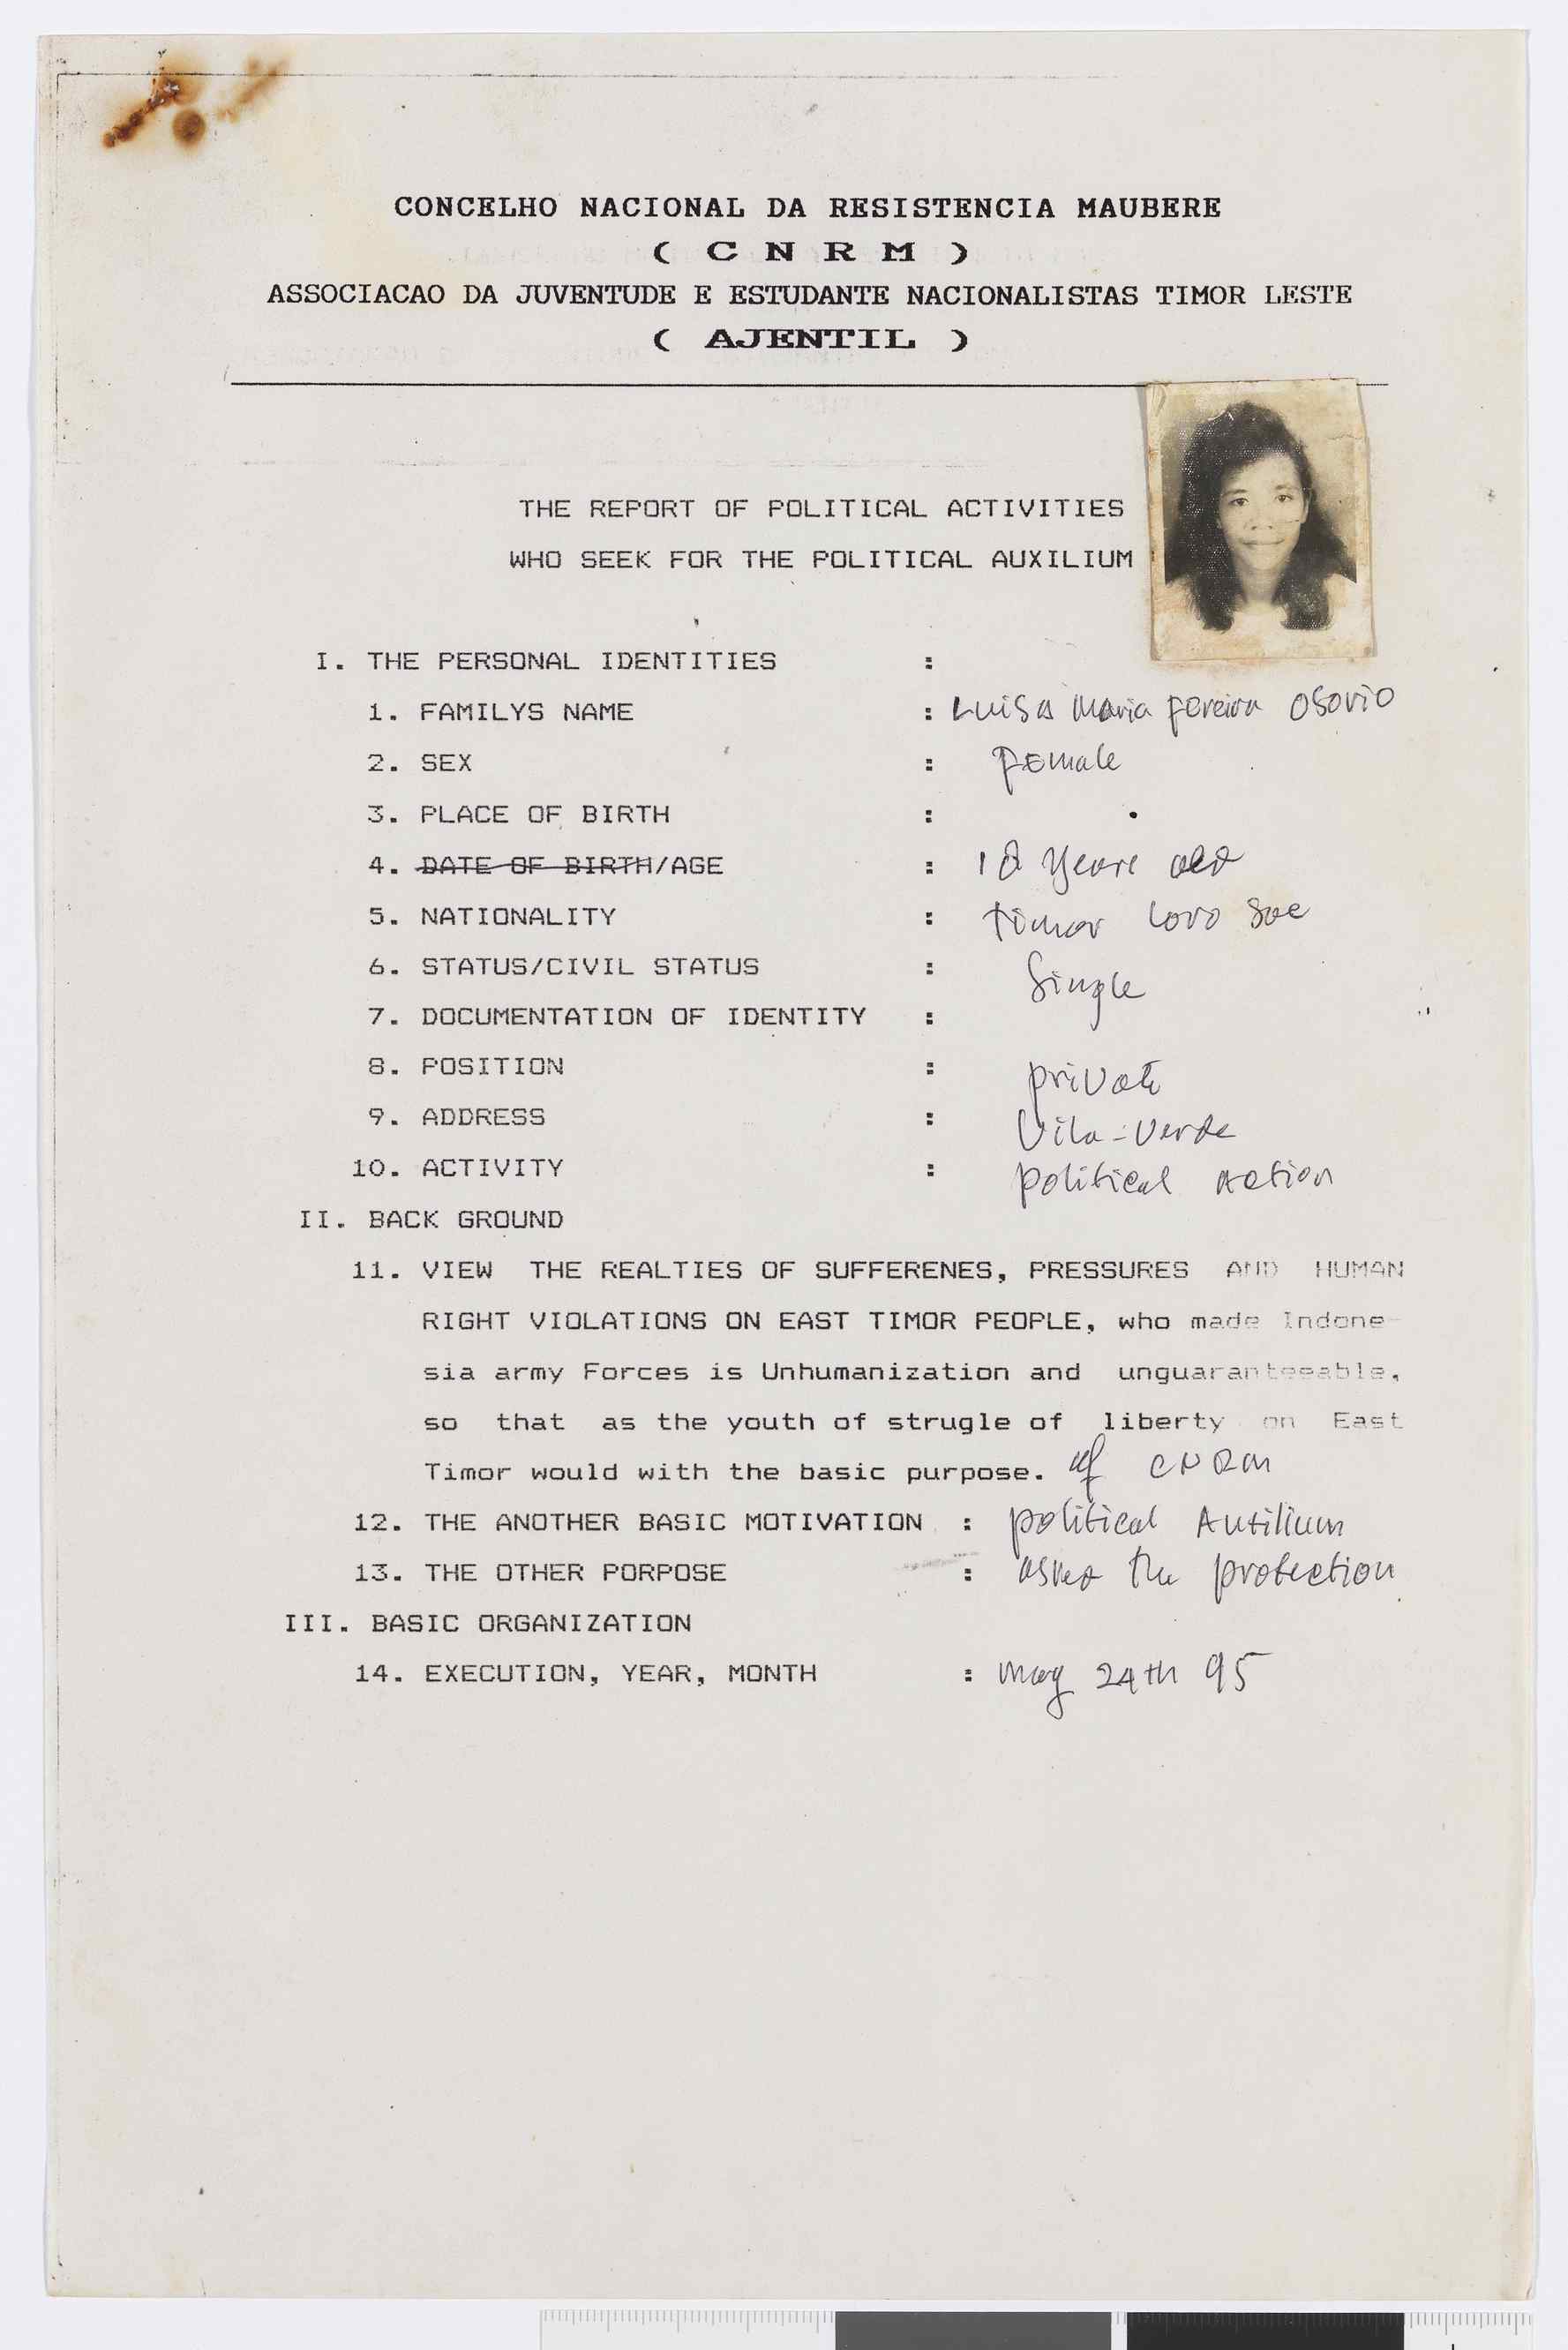 CONCELHO NACIONAL DA RESISTENCIA MAUBERE
( C N R M )
ASSOCIACAO DA JUVENTUDE E ESTUDANTE NACIONALISTAS TIMOR LESTE
( AJENTIL )
THE REPORT OF POLITICAL ACTIVITIES
WHO SEEK FOR THE POLITICAL AUXILIUM
I. THE PERSONAL IDENTITIES :
1. FAMILYS NAME : Luisa Maria Pereira Osorio
2. SEX : Female
3. PLACE OF BIRTH :
4. DATE OF BIRTH/AGE : 18 years old
5. NATIONALITY : Timor Loro Sae
6. STATUS/CIVIL STATUS : Single
7. DOCUMENTATION OF IDENTITY :
8. POSITION : private
9. ADDRESS : Vila-Verde
10. ACTIVITY : political Action
II. BACK GROUND
11. VIEW THE REALTIES OF SUFFERENES, PRESSURES AND HUMAN
RIGHT VIOLATIONS ON EAST TIMOR PEOPLE, who made Indone-
sia army Forces is Unhumanization and unguaranteeable,
so that as the youth of strugle of liberty on East
Timor would with the basic purpose. of CNRM
12. THE ANOTHER BASIC MOTIVATION : political Auxilium
13. THE OTHER PORPOSE : asked the protection
III. BASIC ORGANIZATION
14. EXECUTION, YEAR, MONTH : may 24th 95